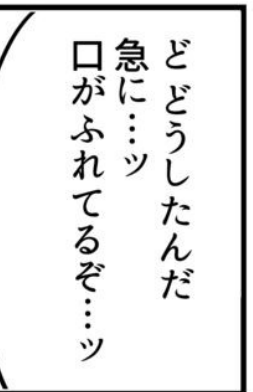 ど どうしたんだ
急に…ッ
口がふれてるぞ…ッ